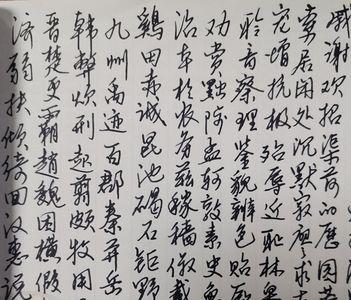 感谢欢招渠荷的歷园莽
索居闲处沉默寂寥求古
宠增抗极殆辱近耻林皋
聆音察理鉴貌辨色贻厥
劝赏黜陟孟轲敦素史鱼
治本於农务兹稼穑俶载
鸡田赤诚昆池碣石钜野
九州禹迹百郡秦并岳
韩弊烦刑起翦颇牧用
晋楚更霸赵魏困横假
济弱扶倾绮回汉惠说